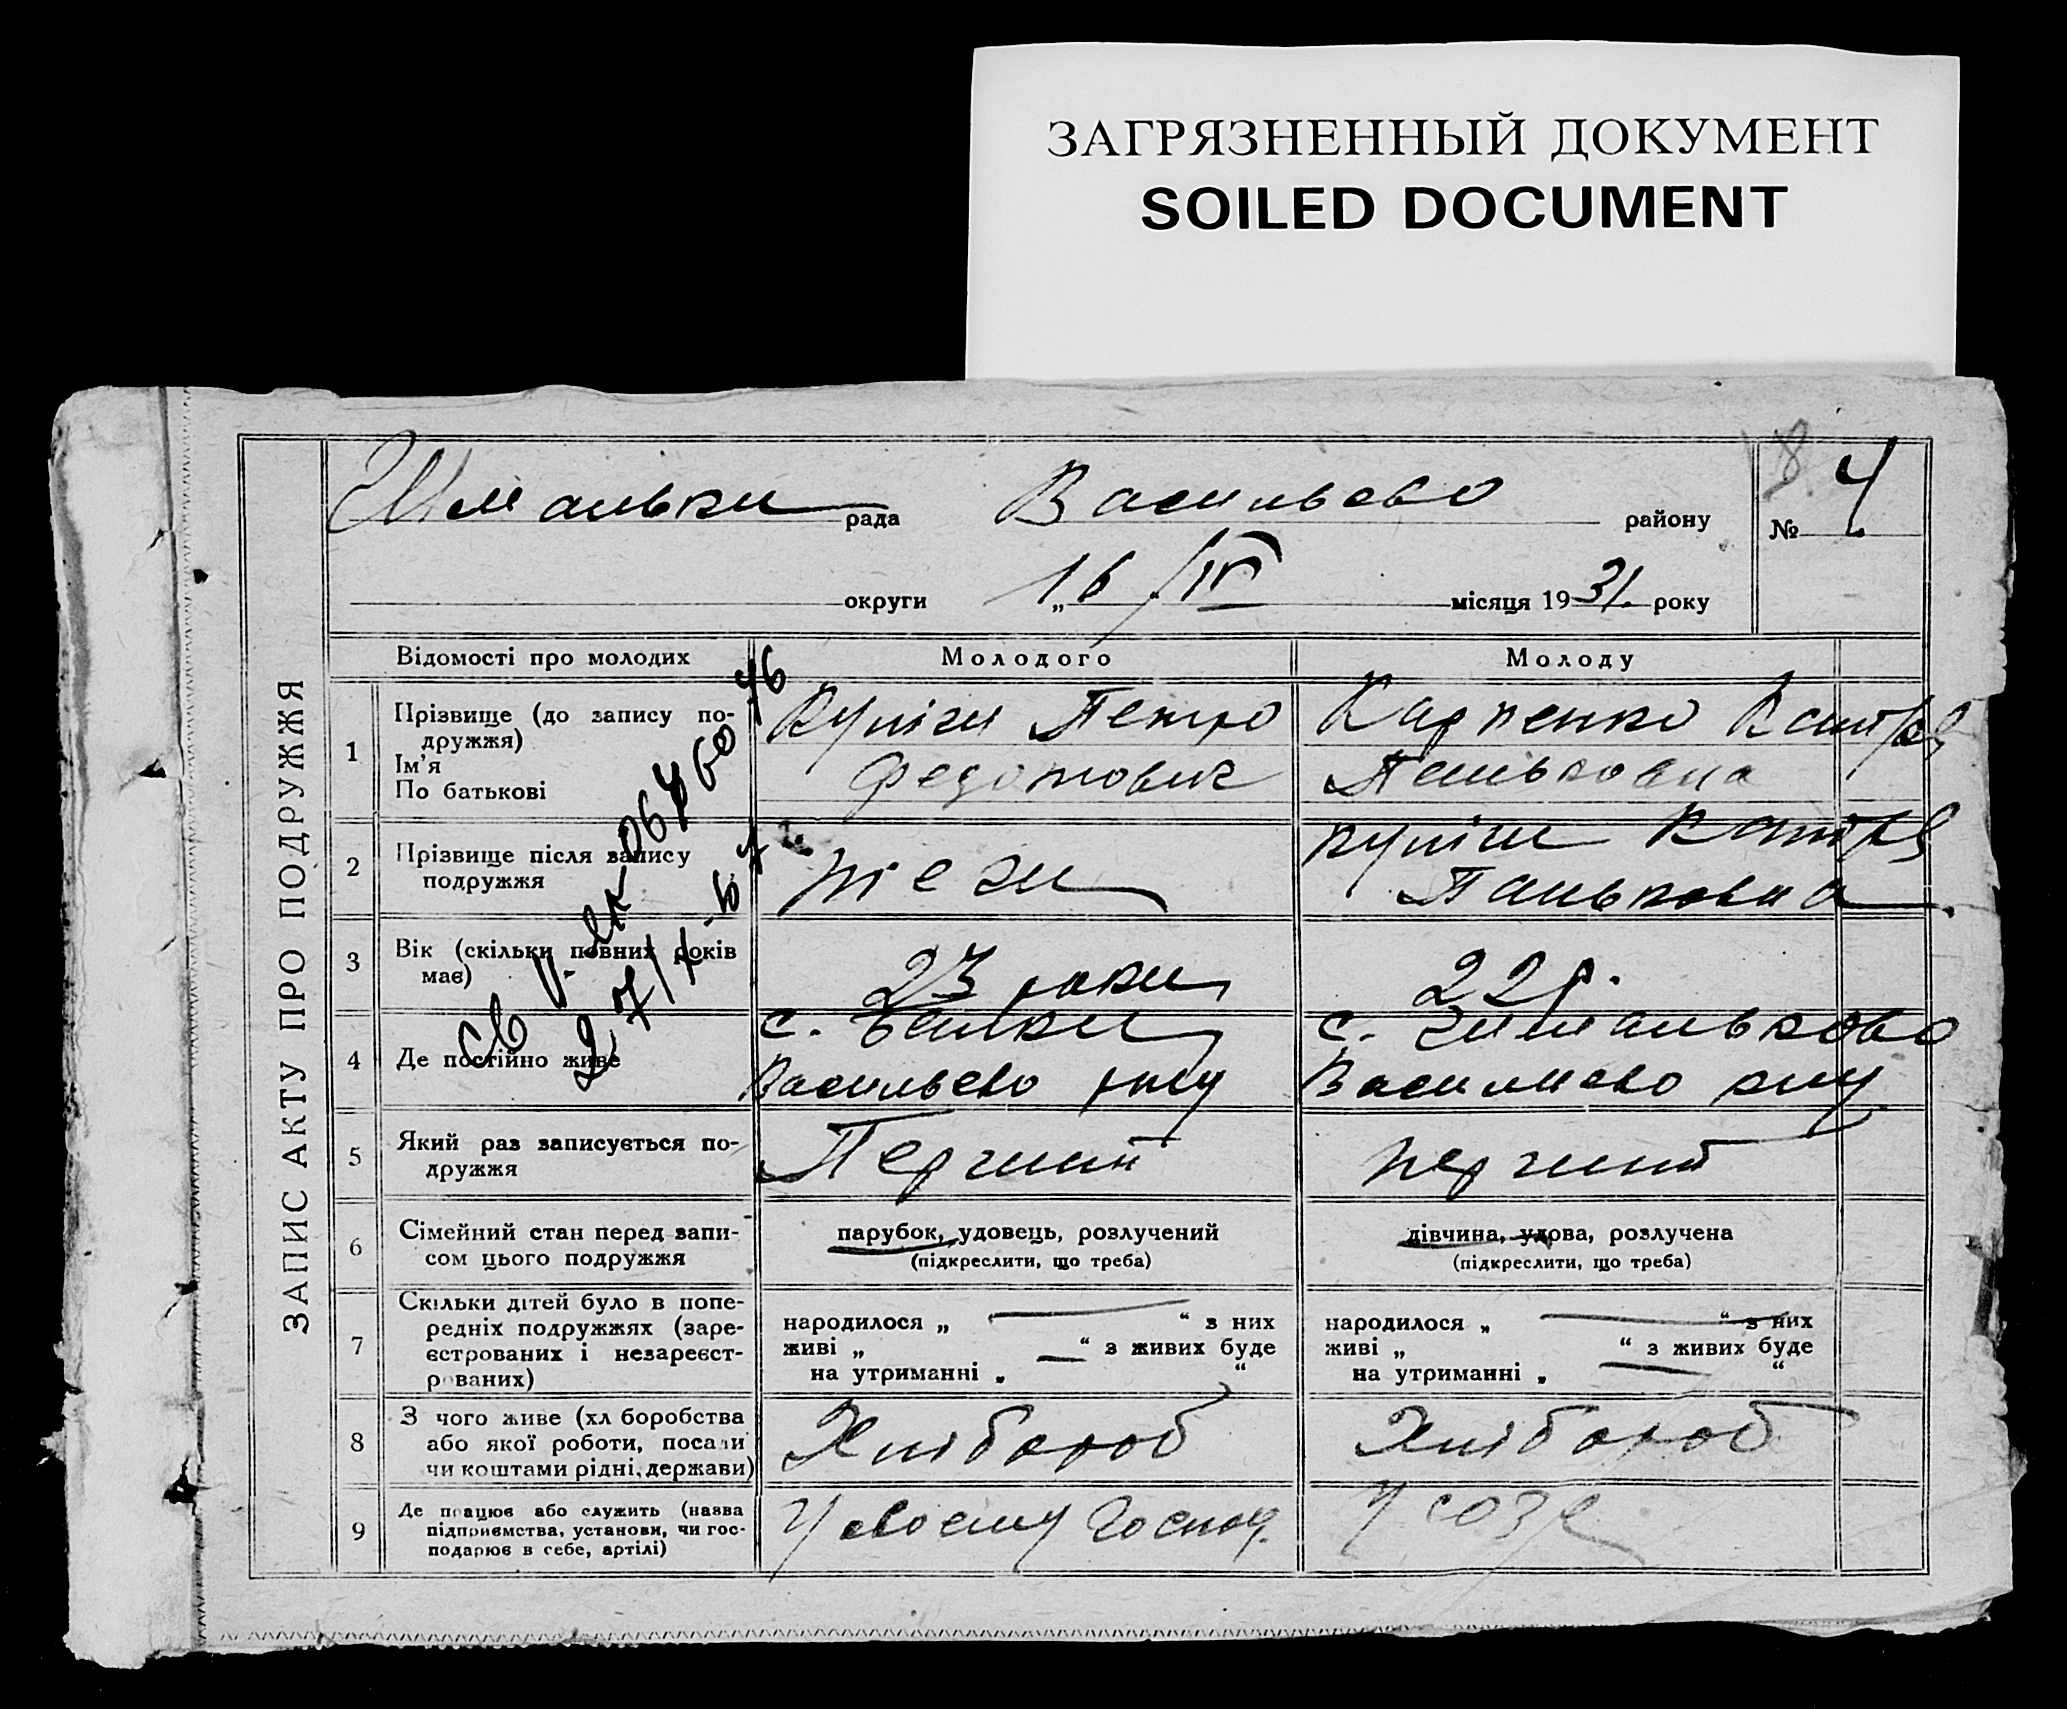 ЗАГРЯЗНЕННЫЙ ДОКУМЕНТ
SOILED DOCUMENT
ЗАПИС АКТУ ПРО ПОДРУЖЖЯ
рада Васильево району № 4
округи „16/IV місяця 1931. року
Відомості про молодих Молодого Молоду
1 Прізвище (до запису по-
дружжя)
Ім'я
По батькові
Петро
Федотович
Карпенко
Паньковна
2 Прізвище після запису
подружжя
Паньковна
3 Вік (скільки повних років
має)
23 роки
22 р.
4 Де постійно живе
с.
Васильево р-ну
с.
5 Який раз записується по-
дружжя
Перший
перший
6 Сімейний стан перед запи-
сом цього подружжя
парубок, удовець, розлучений
(підкреслити, що треба)
дівчина, удова, розлучена
(підкреслити, що треба)
7 Скільки дітей було в попе-
редніх подружжях (заре-
єстрованих і незареєст-
рованих)
народилося „ — “ з них
живі „ — “ з живих буде
на утриманні „ “
народилося „ — “ з них
живі „ “ з живих буде
на утриманні „ — “
8 З чого живе (хл боробства
або якої роботи, посади
чи коштами рідні, держави)
Хлібороб
Хлібороб
9 Де працює або служить (назва
підприємства, установи, чи гос-
подарює в себе, артілі)
У своєму господ.
У созе